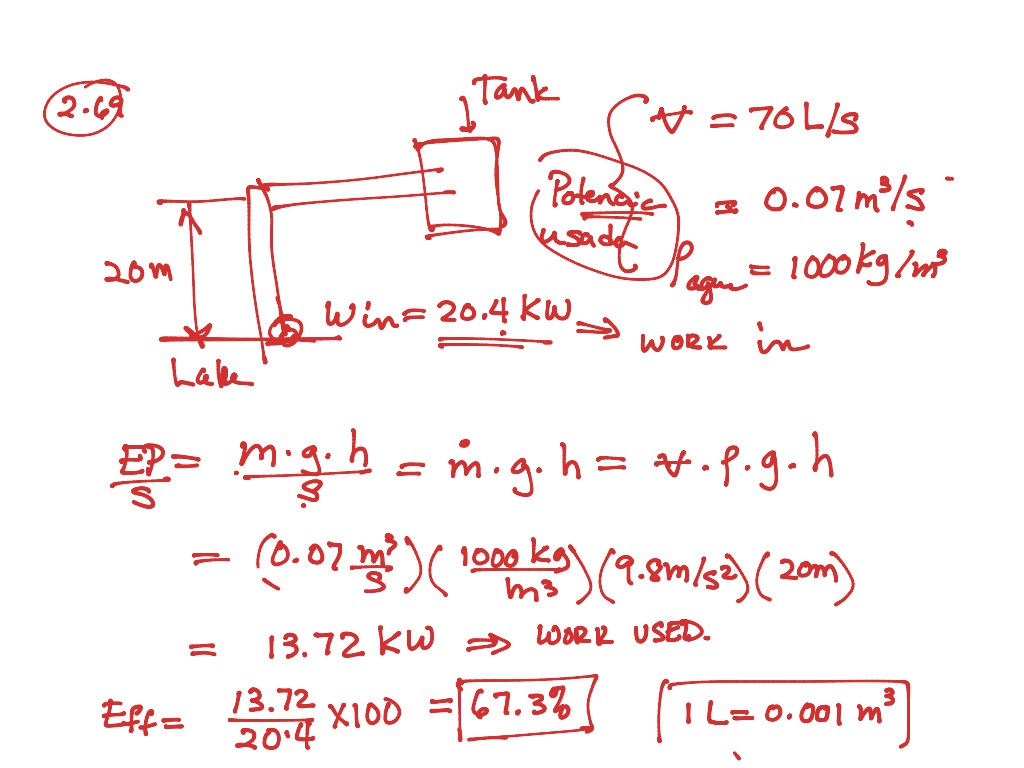 2.69
Tank
V = 70 L/s
Potencia
usada
= 0.07 m³/s
20m
ρagua = 1000 kg/m³
Win = 20.4 KW ⇒ WORK in
Lake
EP/s = m.g.h/s = ṁ.g.h = V.ρ.g.h
= (0.07 m³/s)(1000 kg/m³)(9.8m/s²)(20m)
= 13.72 KW ⇒ WORK USED.
Eff = 13.72/20.4 X100 = 67.3%
1 L = 0.001 m³